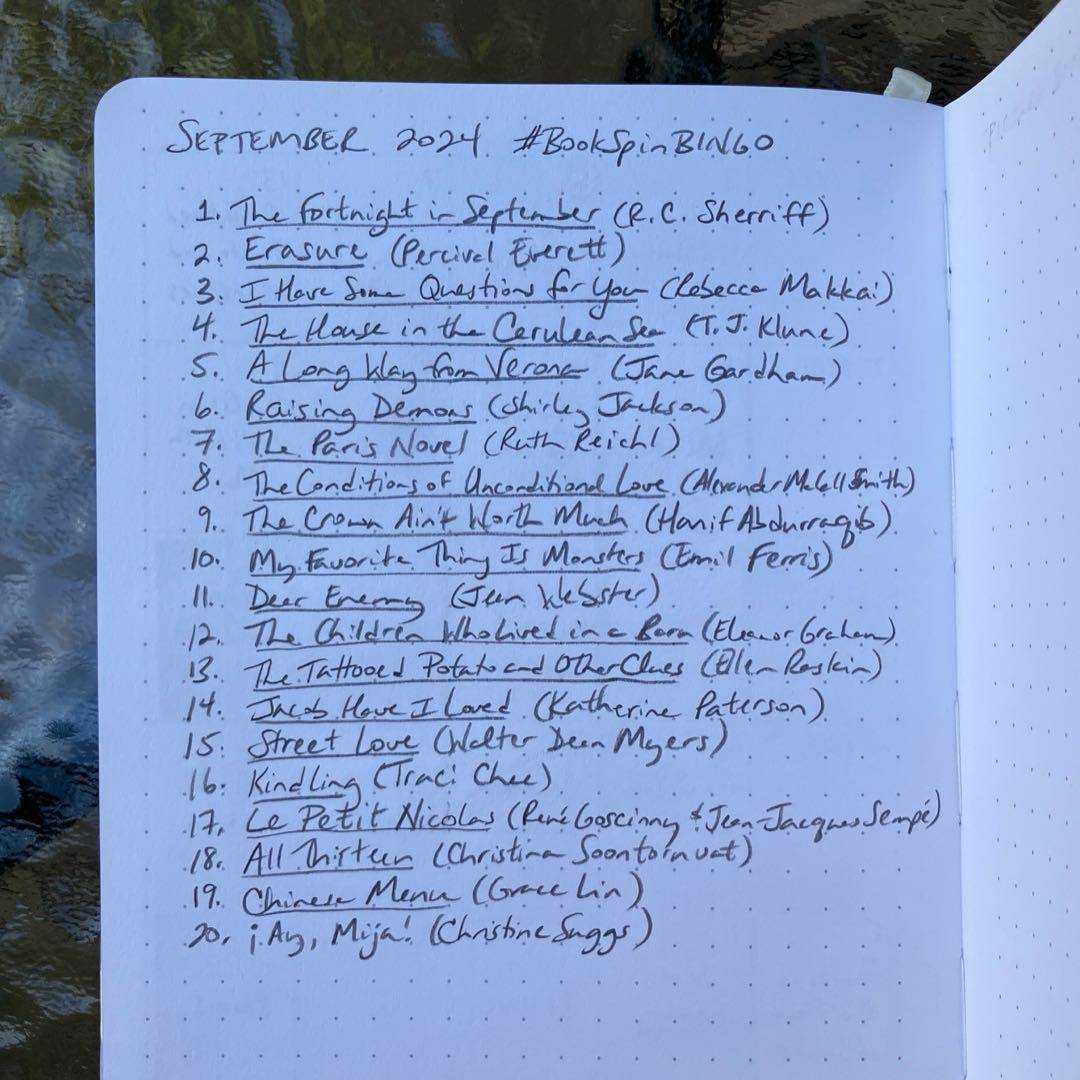 SEPTEMBER 2024 #BookSpinBINGO
1. The Fortnight in September (R.C. Sherriff)
2. Erasure (Percival Everett)
3. I Have Some Questions for You (Rebecca Makkai)
4. The House in the Cerulean Sea (T.J. Klune)
5. A Long Way from Verona (Jane Gardham)
6. Raising Demons (Shirley Jackson)
7. The Paris Novel (Ruth Reichl)
8. The Conditions of Unconditional Love (Alexander McCall Smith)
9. The Crown Ain't Worth Much (Hanif Abdurraqib)
10. My Favorite Thing Is Monsters (Emil Ferris)
11. Dear Enemy (Jean Webster)
12. The Children Who Lived in a Barn (Eleanor Graham)
13. The Tattooed Potato and Other Clues (Ellen Raskin)
14. Jacob Have I Loved (Katherine Paterson)
15. Street Love (Walter Dean Myers)
16. Kindling (Traci Chee)
17. Le Petit Nicolas (René Goscinny & Jean-Jacques Sempé)
18. All Thirteen (Christina Soontornvat)
19. Chinese Menu (Grace Lin)
20. ¡Ay, Mija! (Christine Suggs)